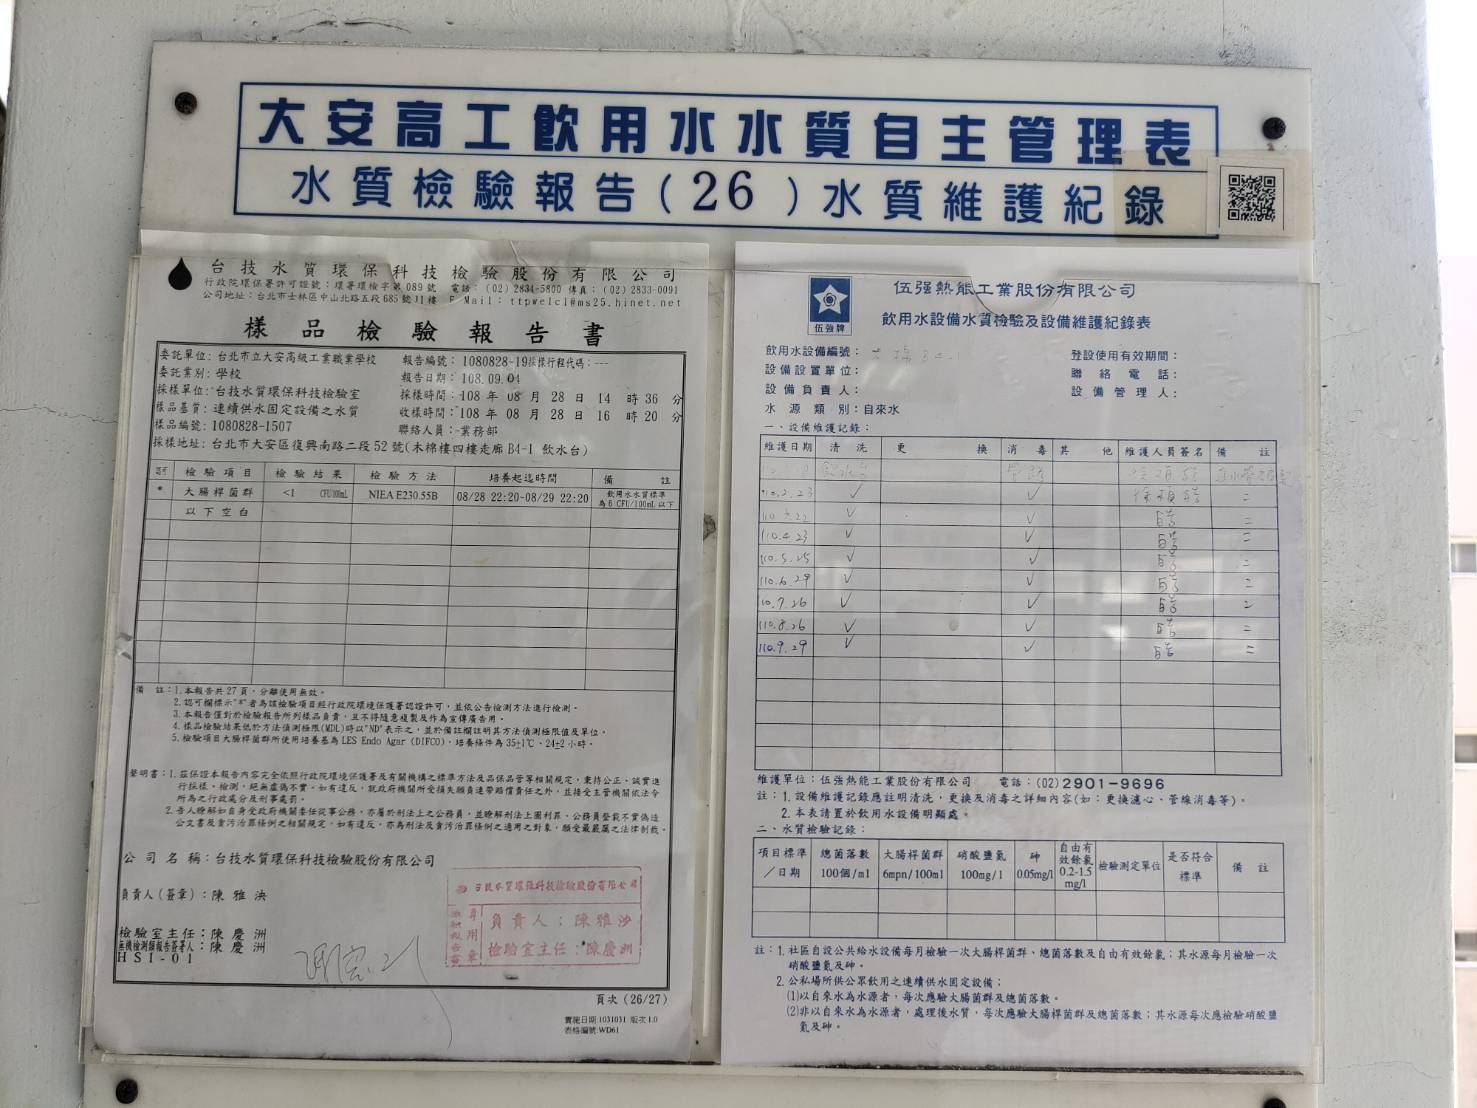 大安高工飲用水水質自主管理表
水質檢驗報告(26)水質維護紀錄
台技水質環保科技檢驗股份有限公司
行政院環保署許可證號：環署環檢字第089號 電話：(02)2834-5800 傳真：(02)2833-0091
公司地址：台北市士林區中山北路五段685號11樓 E-Mail：ttpwelcl@ms25.hinet.net
樣品檢驗報告書
委託單位：台北市立大安高級工業職業學校 報告編號：1080828-19採樣行程代碼：---
委託業別：學校 報告日期：108.09.04
採樣單位：台技水質環保科技檢驗室 採樣時間：108 年 08 月 28 日 14 時 36 分
樣品基質：連續供水固定設備之水質 收樣時間：108 年 08 月 28 日 16 時 20 分
樣品編號：1080828-1507 聯絡人員：業務部
採樣地址：台北市大安區復興南路二段52號(木棉樓四樓走廊 B4-1 飲水台)
認可 檢驗項目 檢驗結果 檢驗方法 培養起迄時間 備註
* 大腸桿菌群 <1 CFU/100mL NIEA E230.55B 08/28 22:20-08/29 22:20 飲用水水質標準
為6 CFU/100mL以下
以下空白
備 註：1.本報告共27頁，分離使用無效。
2.認可欄標示"*"者為該檢驗項目經行政院環境保護署認證許可，並依公告檢測方法進行檢測。
3.本報告僅對於檢驗報告所列樣品負責，且不得隨意複製及作為宣傳廣告用。
4.樣品檢驗結果低於方法偵測極限(MDL)時以"ND"表示之，並於備註欄註明其方法偵測極限值及單位。
5.檢驗項目大腸桿菌群所使用培養基為LES Endo Agar (DIFCO)，培養條件為35±1℃、24±2小時。
聲明書：1.茲保證本報告內容完全依照行政院環境保護署及有關機構之標準方法及品保品管等相關規定，秉持公正、誠實進
行採樣、檢測，絕無虛偽不實，如有違反，就政府機關所受損失願負連帶賠償責任之外，並接受主管機關依法令
所為之行政處分及刑事處罰。
2.吾人瞭解如自身受政府機關委任從事公務，亦屬於刑法上之公務員，並瞭解刑法上圖利罪、公務員登載不實偽造
公文書及貪污治罪條例之相關規定，如有違反，亦為刑法及貪污治罪條例之適用之對象，願受最嚴厲之法律制裁。
公司名稱：台技水質環保科技檢驗股份有限公司
負責人(簽章)：陳雅泱
檢驗室主任：陳慶洲
無機檢測類報告簽署人：陳慶洲
HSI-01
台技水質環保科技檢驗股份有限公司
檢驗報告 專用章
負責人：陳雅泱
檢驗室主任：陳慶洲
頁次 (26/27)
實施日期:1031031 版次1.0
表格編號:WD61
伍强牌
伍强熱能工業股份有限公司
飲用水設備水質檢驗及設備維護紀錄表
飲用水設備編號： B4-1 登設使用有效期間：
設備設置單位： 聯絡電話：
設備負責人： 設備管理人：
水源類別：自來水
一、設備維護記錄：
維護日期 清洗 更換 消毒 其他 維護人員簽名 備註
110.2.23 ✓ ✓ =
110.3.22 ✓ ✓ =
110.4.23 ✓ ✓ =
110.5.25 ✓ ✓ =
110.6.29 ✓ ✓ =
110.7.26 ✓ ✓ =
110.8.26 ✓ ✓ =
110.9.29 ✓ ✓ =
維護單位：伍强熱能工業股份有限公司 電話：(02)2901-9696
註：1.設備維護記錄應註明清洗、更換及消毒之詳細內容(如：更換濾心、管線消毒等)。
2.本表請置於飲用水設備明顯處。
二、水質檢驗記錄：
項目標準／日期 總菌落數 100個/ml 大腸桿菌群 6mpn/100ml 硝酸鹽氮 100mg/l 砷 0.05mg/l 自由有效餘氯 0.2-1.5 mg/l 檢驗測定單位 是否符合標準 備註
註：1.社區自設公共給水設備每月檢驗一次大腸桿菌群、總菌落數及自由有效餘氯；其水源每月檢驗一次
硝酸鹽氮及砷。
2.公私場所供公眾飲用之連續供水固定設備：
(1)以自來水為水源者，每次應驗大腸菌群及總菌落數。
(2)非以自來水為水源者，處理後水質，每次應驗大腸桿菌群及總菌落數；其水源每次應檢驗硝酸鹽
氮及砷。